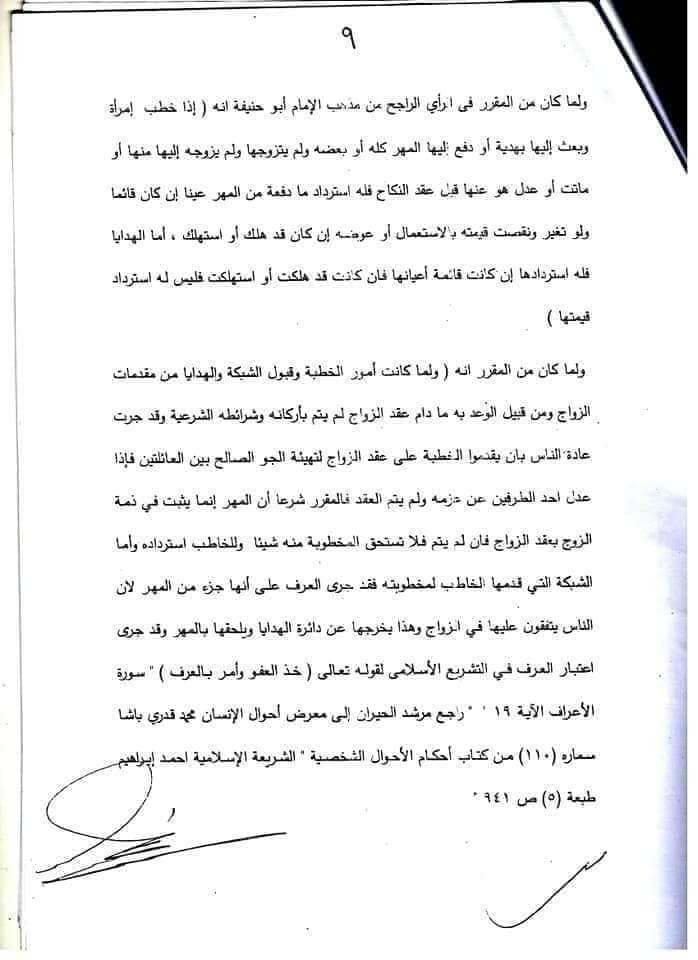 ٩
ولما كان من المقرر فى الرأي الراجح من مذهب الإمام أبو حنيفة انه ( إذا خطب إمرأة
وبعث إليها بهدية أو دفع إليها المهر كله أو بعضه ولم يتزوجها ولم يزوجه إليها منها أو
ماتت أو عدل هو عنها قبل عقد النكاح فله استرداد ما دفعة من المهر عينا إن كان قائما
ولو تغير ونقصت قيمته بالاستعمال أو عوضه إن كان قد هلك أو استهلك ، أما الهدايا
فله استردادها إن كانت قائمة أعيانها فان كانت قد هلكت أو استهلكت فليس له استرداد
قيمتها )
ولما كان من المقرر انه ( ولما كانت أمور الخطبة وقبول الشبكة والهدايا من مقدمات
الزواج ومن قبيل الوعد به ما دام عقد الزواج لم يتم بأركانه وشرائطه الشرعية وقد جرت
عادة الناس بان يقدموا الخطبة على عقد الزواج لتهيئة الجو الصالح بين العائلتين فإذا
عدل احد الطرفين عن عزمه ولم يتم العقد فالمقرر شرعا أن المهر إنما يثبت في ذمة
الزوج بعقد الزواج فان لم يتم فلا تستحق المخطوبة منه شيئا وللخاطب استرداده وأما
الشبكة التي قدمها الخاطب لمخطوبته فقد جرى العرف على أنها جزء من المهر لان
الناس يتفقون عليها في الزواج وهذا يخرجها عن دائرة الهدايا ويلحقها بالمهر وقد جرى
اعتبار العرف في التشريع الأسلامى لقوله تعالى ( خذ العفو وأمر بالعرف ) " سورة
الأعراف الآية ١٩ " راجع مرشد الحيران إلى معرض أحوال الإنسان محمد قدري باشا
(١١٠) من كتاب أحكام الأحوال الشخصية " الشريعة الإسلامية احمد إبراهيم
طبعة (٥) ص ٩٤١ "